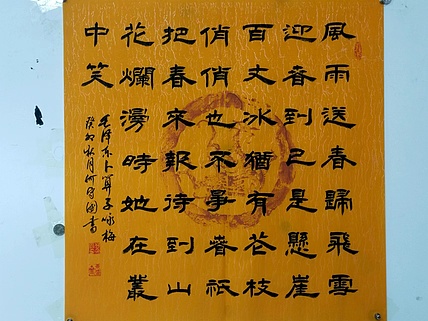 風雨送春歸飛雪
迎春到已是懸崖
百丈冰猶有花枝
俏俏也不爭春祇
把春來報待到山
花爛漫時她在叢
中笑
毛泽东卜算子咏梅
癸卯秋月何國書